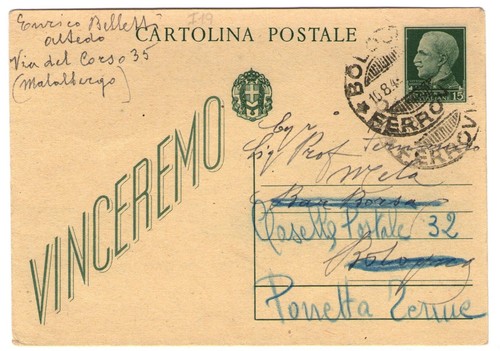 Enrico Belletti
Altedo
Via del Corso 35
(Malalbergo)
I19
CARTOLINA POSTALE
15
BOLOGNA
FERROVIA
FERROVIA
VINCEREMO
Egr
Sig. Prof
Mela
Bar Borsa
Casella Postale 32
Bologna
Porretta Terme